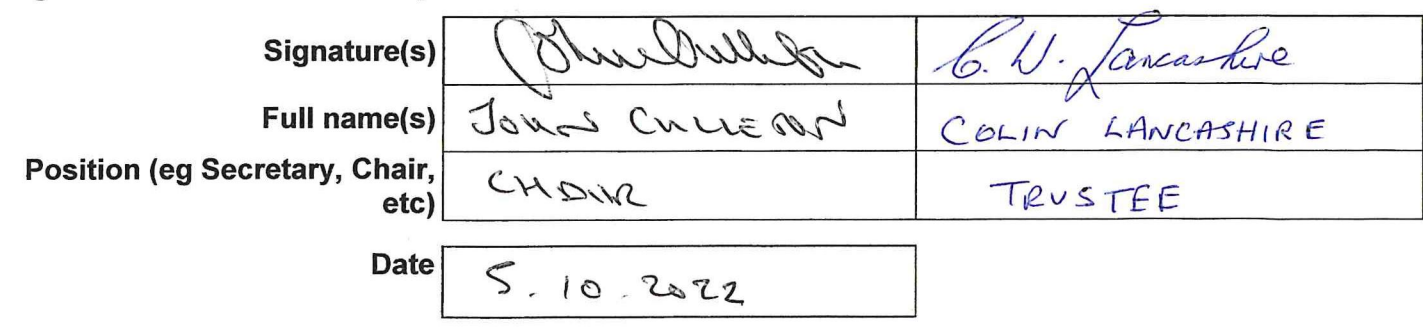 Signature(s) C. W. Lancashire
Full name(s) JOHN COLIN LANCASHIRE
Position (eg Secretary, Chair,
etc) CHAIR TRUSTEE
Date 5.10.2022